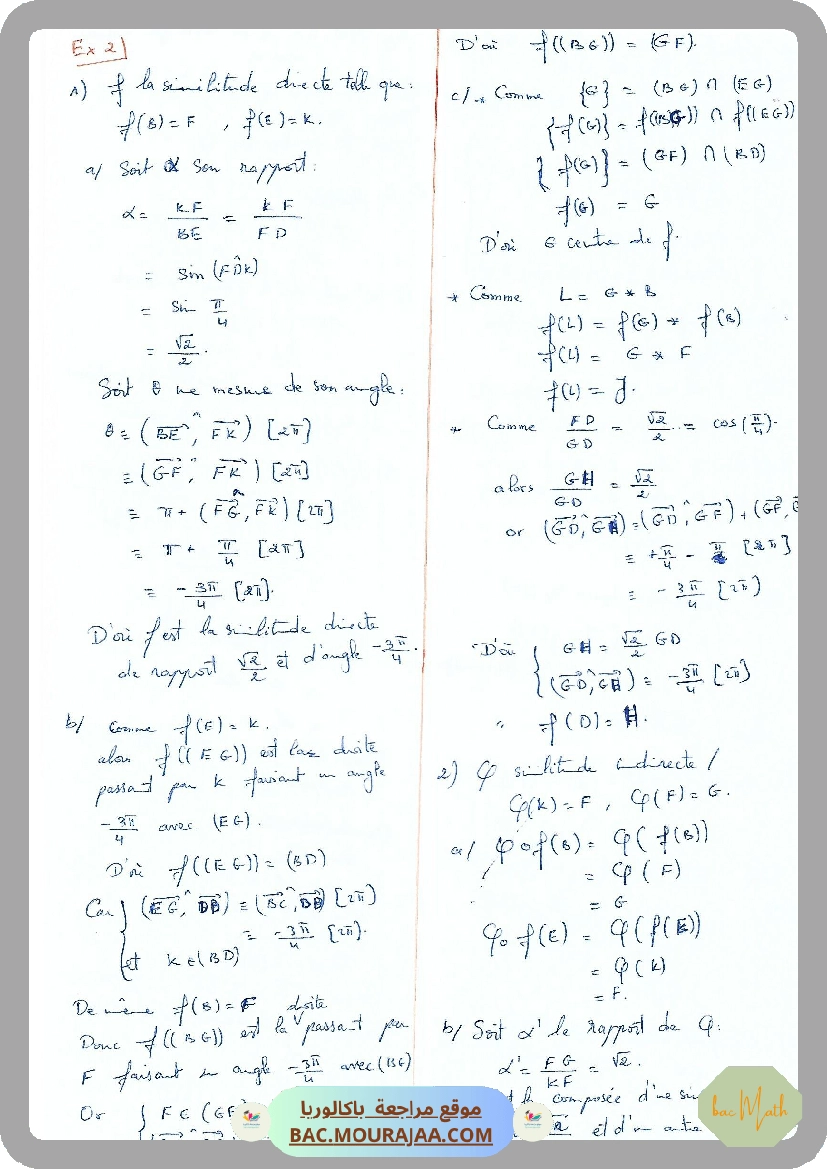 Ex 2)
1) f la similitude directe telle que :
f(B) = F , f(E) = K.
a/ Soit α son rapport :
α = KF/BE = KF/FD
= sin (FD̂K)
= sin π/4
= √2/2.
Soit θ une mesure de son angle :
θ ≡ (BE, FK) [2π]
≡ (GF, FK) [2π]
≡ π + (FG, FK) [2π]
≡ π + π/4 [2π]
≡ -3π/4 [2π].
D'où f est la similitude directe
de rapport √2/2 et d'angle -3π/4.
b/ comme f(E) = K.
alors f((EG)) est la droite
passant par K faisant un angle
-3π/4 avec (EG).
D'où f((EG)) = (BD)
Car { (EG, DB) ≡ (BC, DB) [2π]
≡ -3π/4 [2π].
et K ∈ (BD)
De même f(B) = F
Donc f((BG)) est la droite passant par
F faisant un angle -3π/4 avec (BG)
Or { F ∈ (GF)
D'où f((BG)) = (GF).
c/ * Comme {G} = (BG) ∩ (EG)
{f(G)} = f((BG)) ∩ f((EG))
{f(G)} = (GF) ∩ (BD)
f(G) = G
D'où G centre de f.
* Comme L = G * B
f(L) = f(G) * f(B)
f(L) = G * F
f(L) = J.
* Comme FD/GD = √2/2 = cos(π/4).
alors GH/GD = √2/2
or (GD, GH) ≡ (GD, GF) + (GF,
≡ +π/4 - π [2π]
≡ -3π/4 [2π]
D'où { GH = √2/2 GD
(GD, GH) ≡ -3π/4 [2π]
f(D) = H.
2) φ similitude indirecte /
φ(K) = F , φ(F) = G.
a/ φ∘f(B) = φ(f(B))
= φ(F)
= G
φ∘f(E) = φ(f(E))
= φ(K)
= F.
b/ Soit α' le rapport de φ :
α' = FG/KF = √2.
la composée d'une
et d'un autre
موقع مراجعة باكالوريا
BAC.MOURAJAA.COM
bac Math